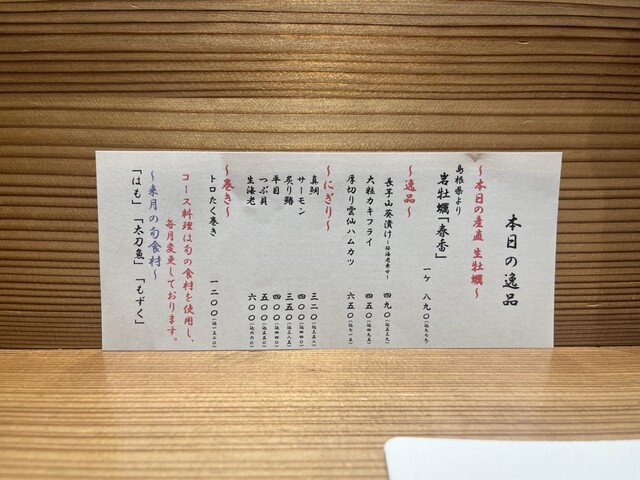 本日の逸品
～本日の産直 生牡蠣～
島根県より
岩牡蠣「春香」 一ケ 八九〇（込九七九）
～逸品～
長芋山葵漬け～桜海老乗せ～ 四九〇（込五三九）
大粒カキフライ 四五〇（込四九五）
厚切り雲仙ハムカツ 六五〇（込七一五）
～にぎり～
真鯛 三二〇（込三五二）
サーモン 四〇〇（込四四〇）
炙り鰆 三五〇（込三八五）
平目 四〇〇（込四四〇）
つぶ貝 五〇〇（込五五〇）
生海老 六〇〇（込六六〇）
～巻き～
トロたく巻き 一二〇〇（込一三二〇）
コース料理は旬の食材を使用し、
毎月変更しております。
～来月の旬食材～
「はも」「太刀魚」「もずく」